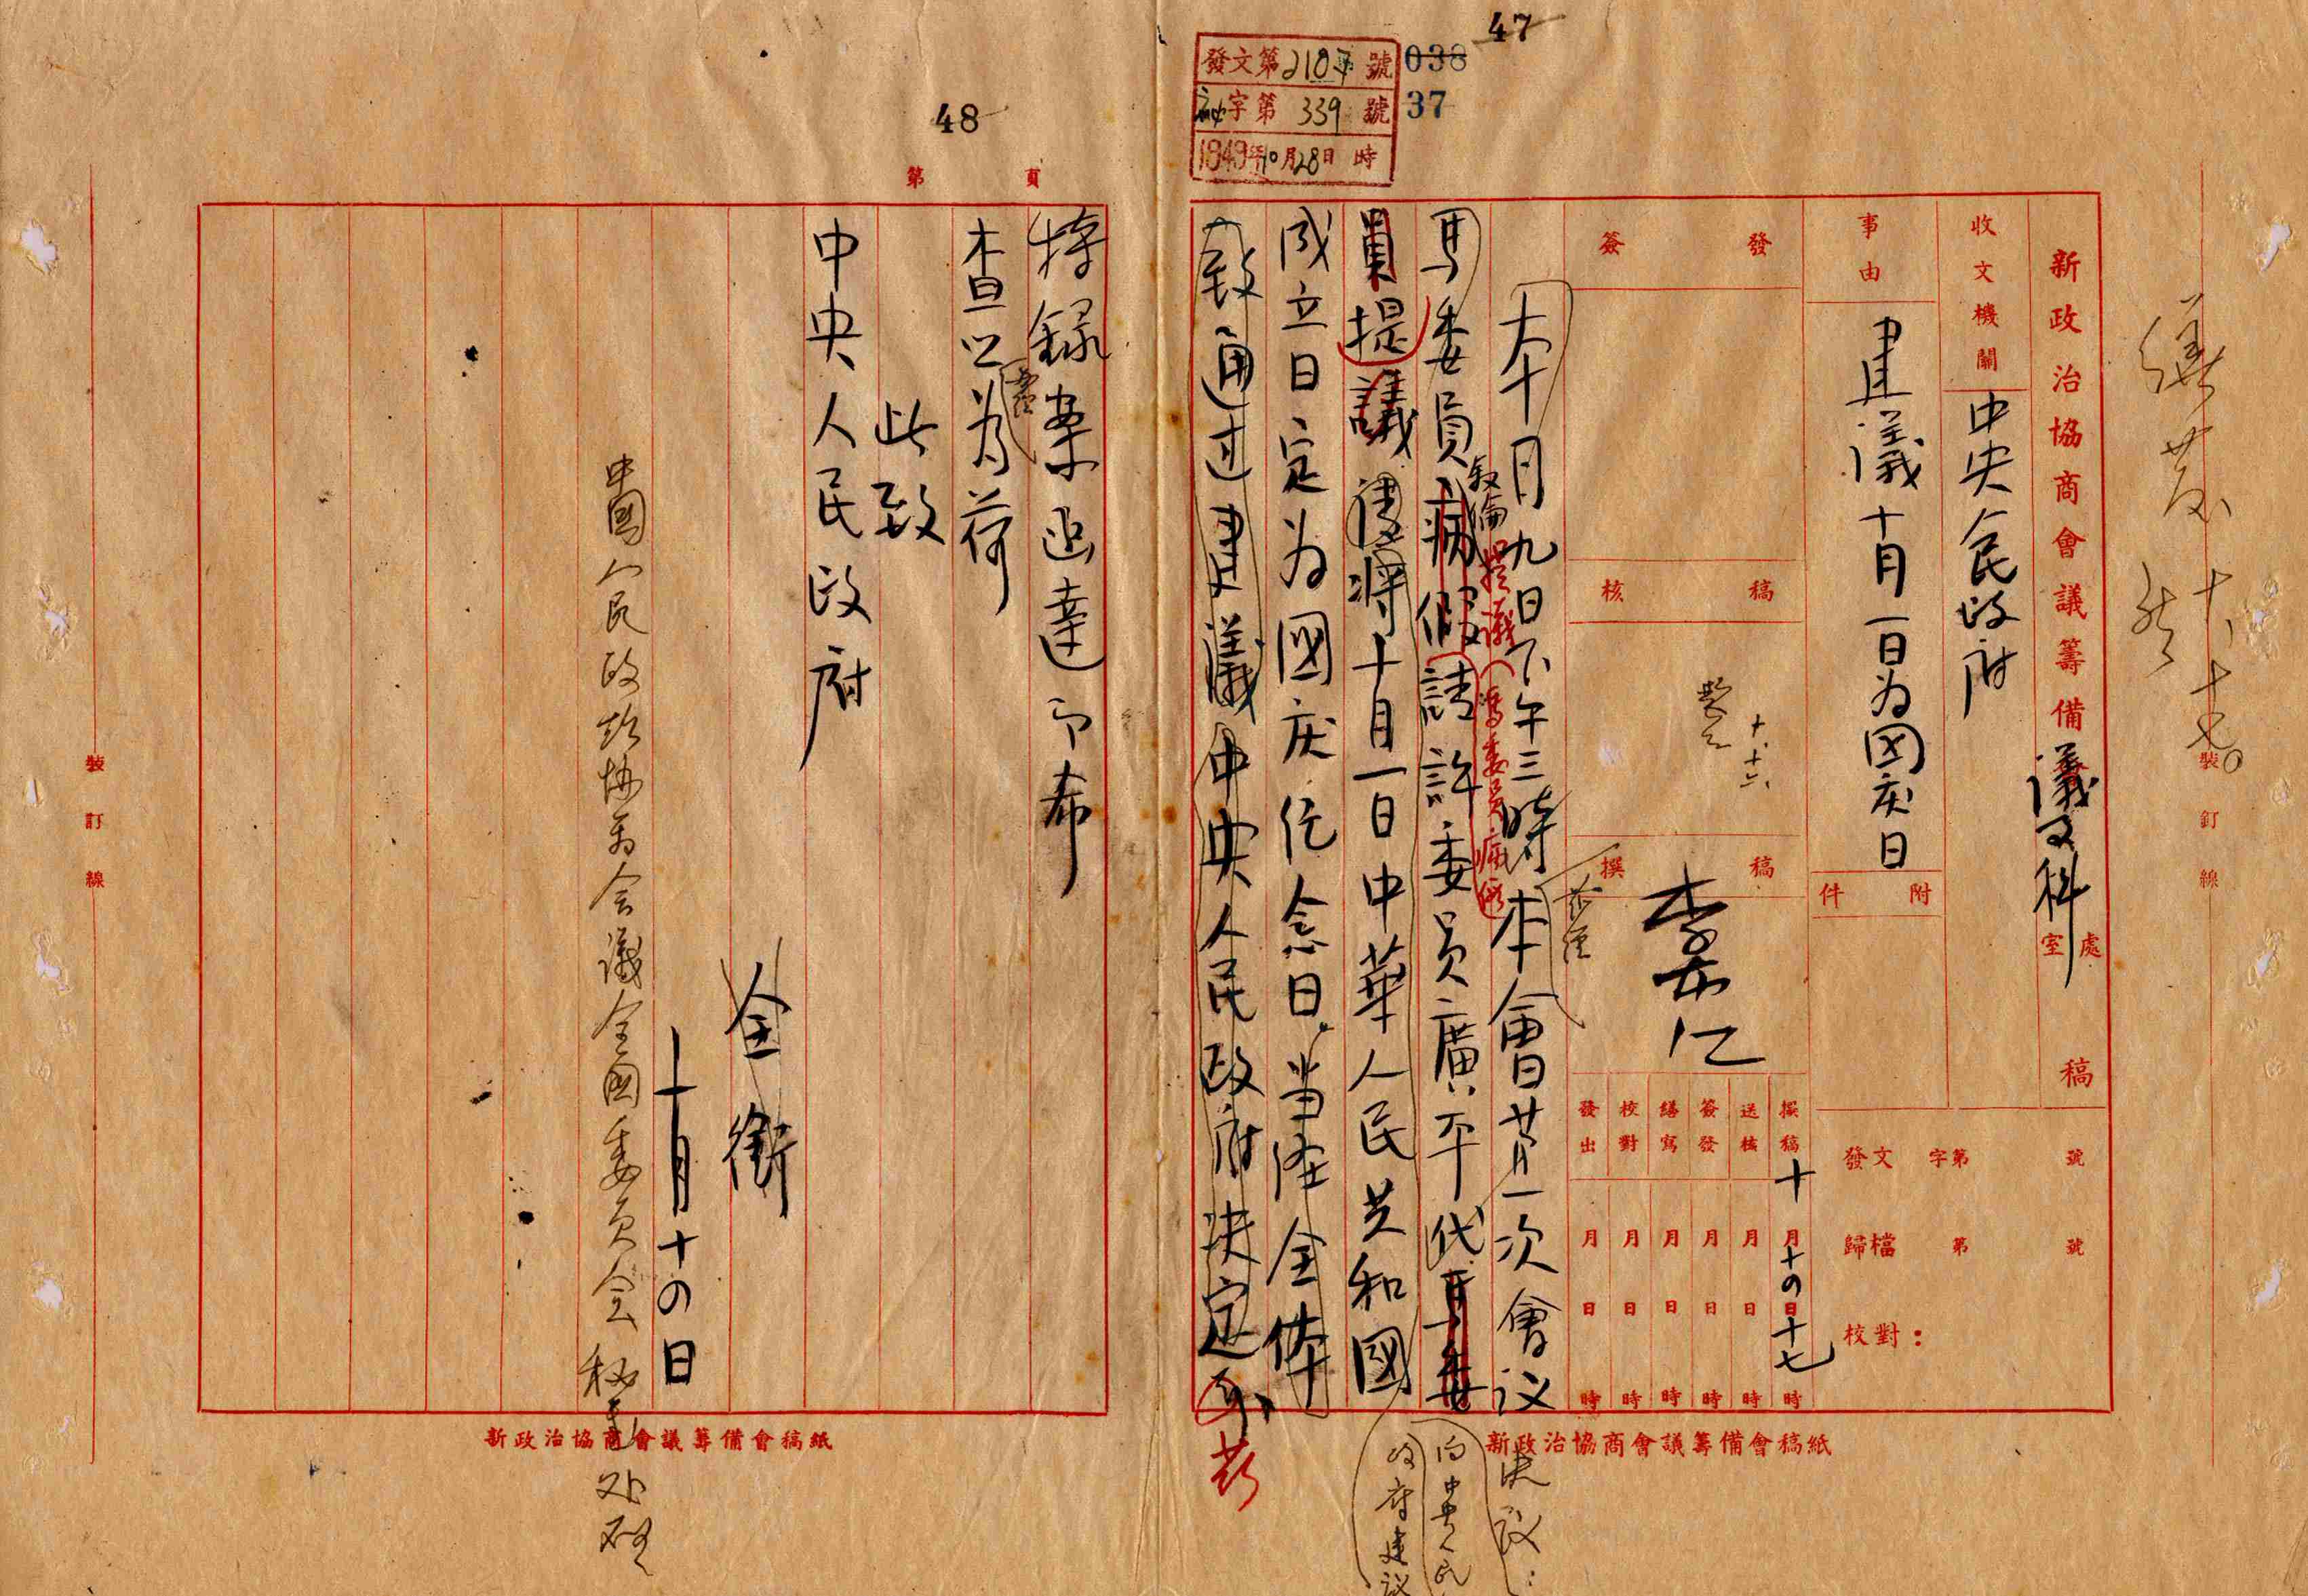 47
發文第218号號
038
秘字第339號
37
1949年10月28日時
繕發
十、十七。
新政治協商會議籌備
議事科
處
室
稿
收文機關
中央人民政府
事由
建議十月一日为国庆日
附件
發文 字第 號
歸檔 第 號
校對：
發簽
稿核
十、十六
稿撰
撰稿 十月十四日十七時
送核 月日時
簽發 月日時
繕寫 月日時
校對 月日時
發出 月日時
本月九日下午三時本會第一次會议
决议：
馬委員病假請許委员廣平代馬委
叙倫提議（馬委员病假
向中央人民
員提議請將十月一日中華人民共和國
政府建议
成立日定为國庆纪念日。当经全体
一致通过建議中央人民政府决定
茲
新政治協商會議籌備會稿紙
裝釘線
48
第 頁
特録案函達即希
查照为荷
此致
中央人民政府
全銜
十月十四日
中國人民政治协商会議全國委员会秘書处啟
新政治協商會議籌備會稿紙
裝訂線